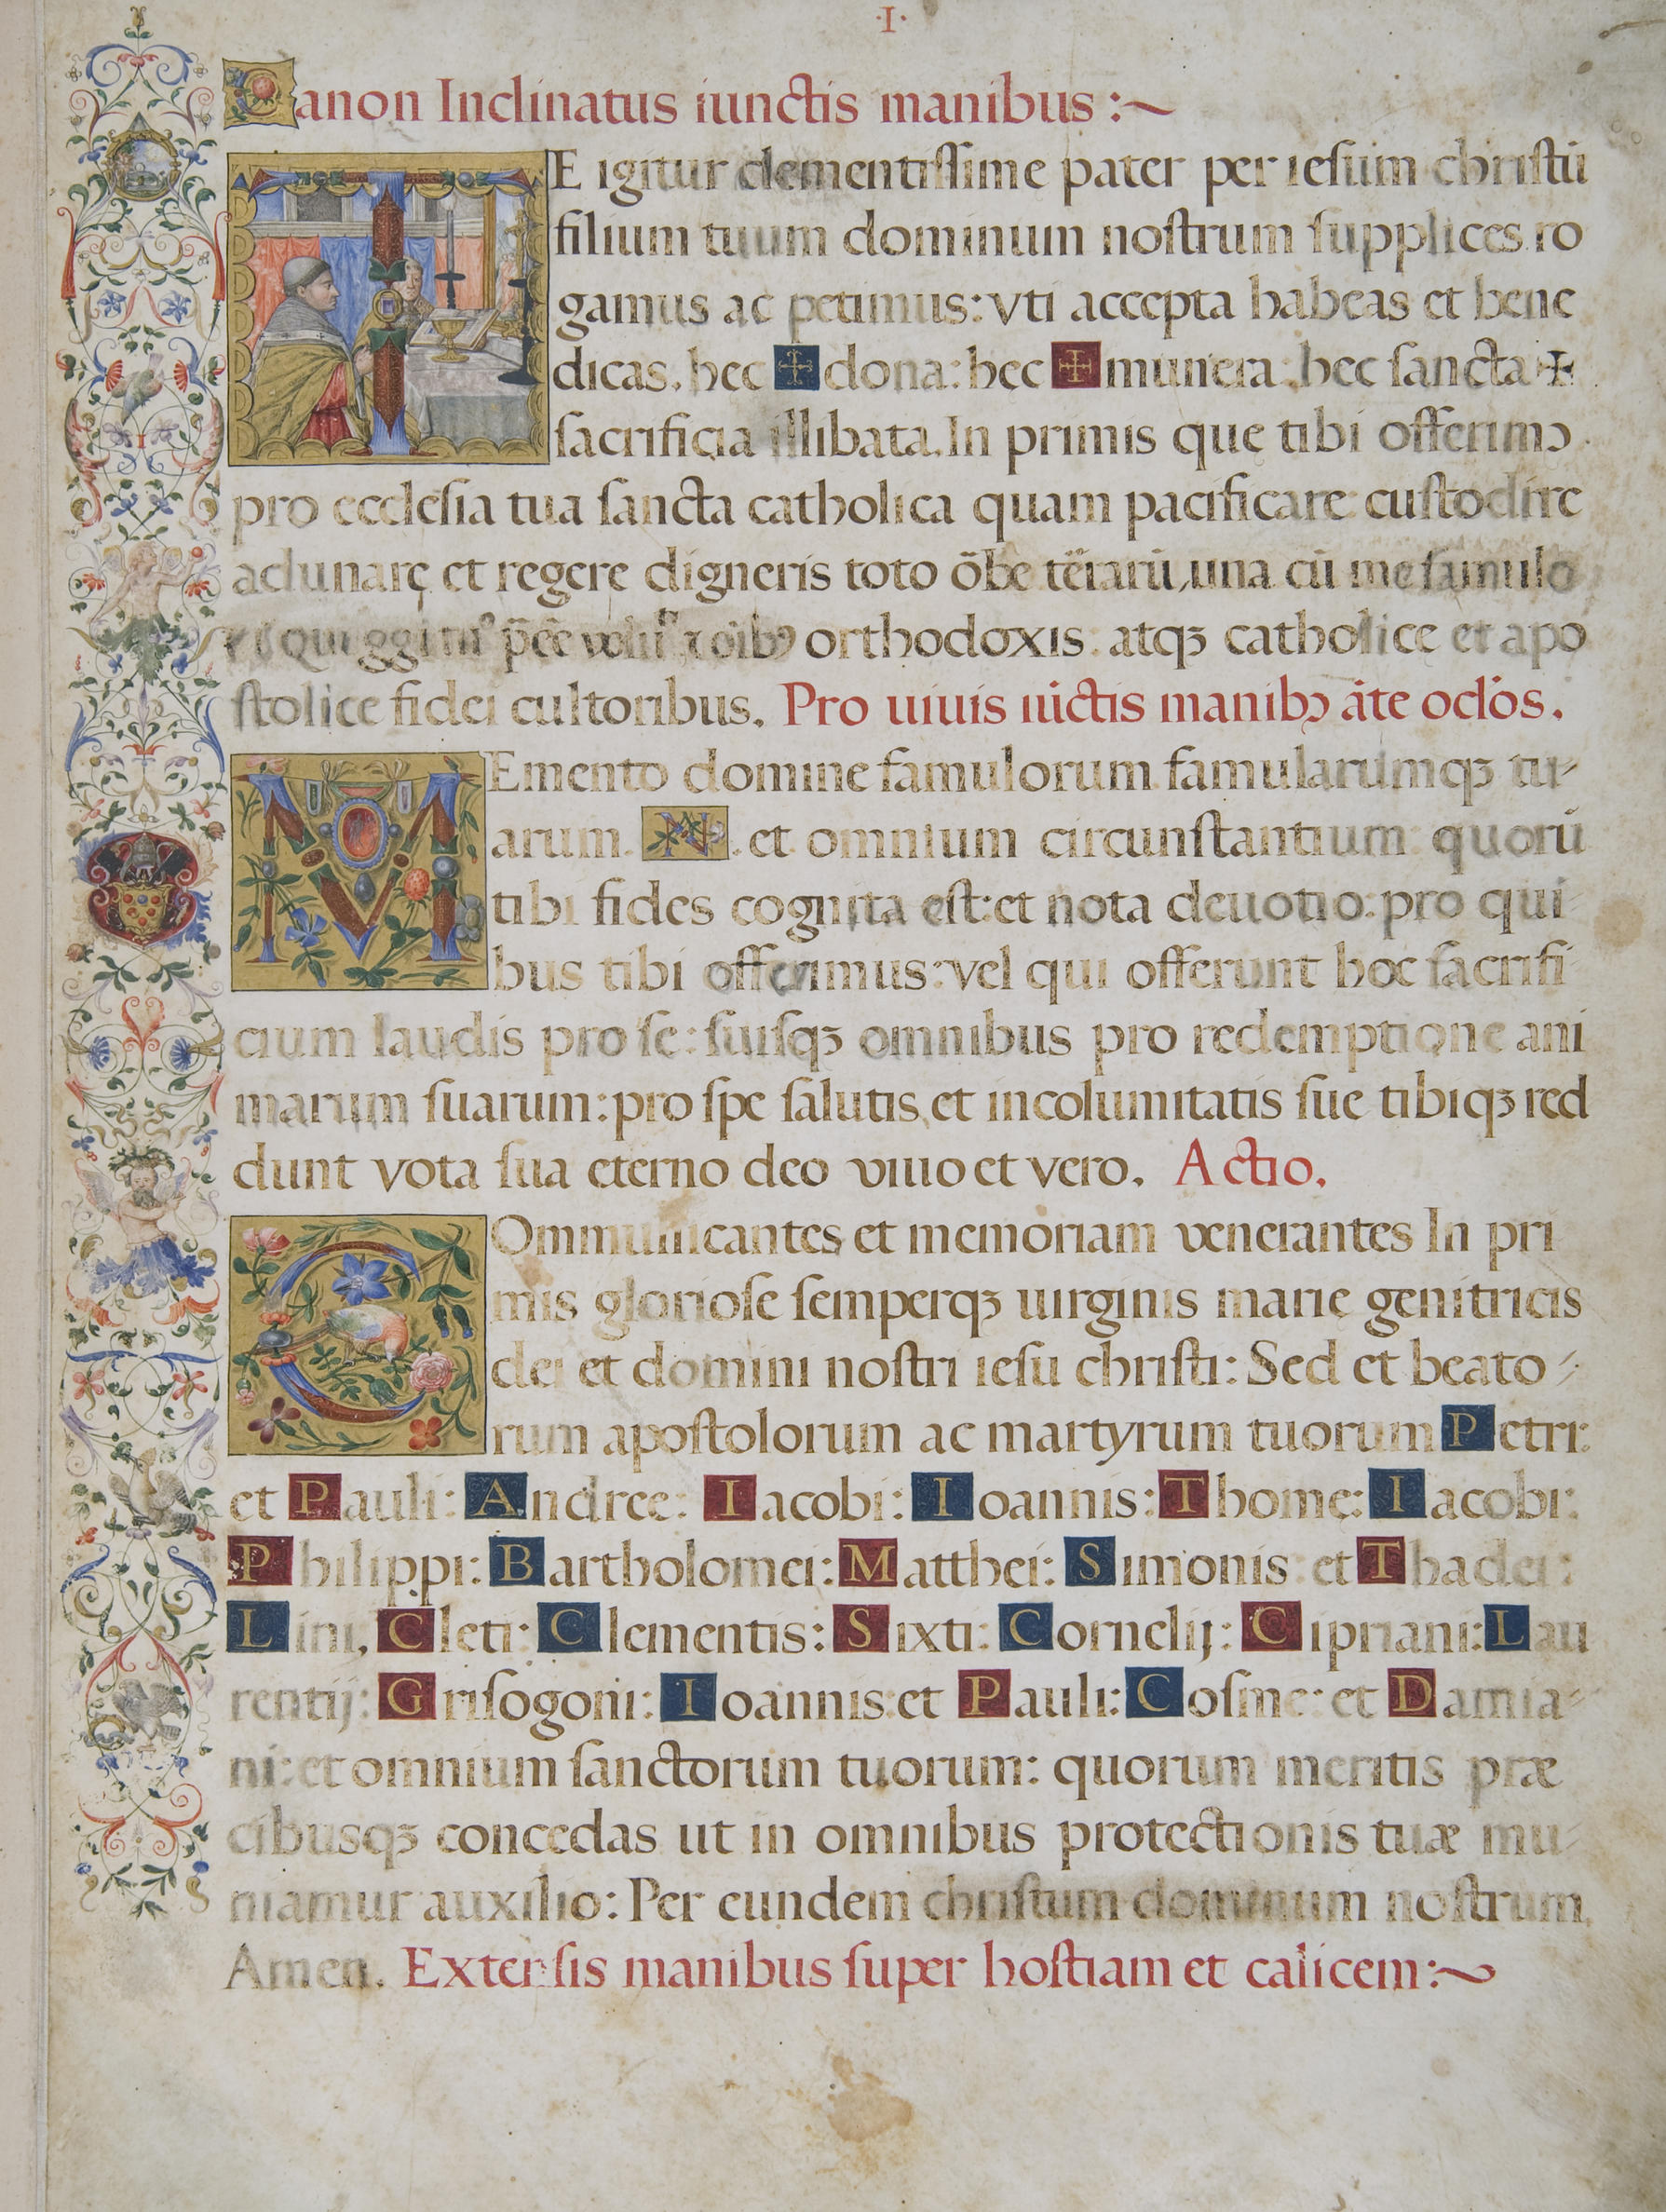 ·I·
Canon Inclinatus iunctis manibus :~
TE igitur clementissime pater per iesum christū
filium tuum dominum nostrum supplices ro
gamus ac petimus: vti accepta habeas et bene
dicas, hec ✠ dona: hec ✠ munera: hec sancta ✠
sacrificia illibata. In primis que tibi offerimꝰ
pro ecclesia tua sancta catholica quam pacificare custodire
adunare et regere digneris toto ōbe tērarū, una cū me famulo
orthodoxis: atqꝫ catholice et apo
stolice fidei cultoribus. Pro uiuis iūctis manibꝰ āte oclōs.
MEmento domine famulorum famularumqꝫ tu-
arum. N. et omnium circunstantium quorū
tibi fides cognita est: et nota deuotio: pro qui
bus tibi offerimus: vel qui offerunt hoc sacrifi
cium laudis pro se: suisqꝫ omnibus pro redemptione ani
marum suarum: pro spe salutis et incolumitatis sue tibiqꝫ red
dunt vota sua eterno deo viuo et vero. Actio.
COmmunicantes et memoriam venerantes In pri
mis gloriose semperqꝫ uirginis marie genitricis
dei et domini nostri iesu christi: Sed et beato-
rum apostolorum ac martyrum tuorum Petri:
et Pauli: Andree: Iacobi: Ioannis: Thome: Iacobi:
Philippi: Bartholomei: Matthei: Simonis et Thadei:
Lini, Cleti: Clementis: Sixti: Cornelij: Cipriani: Lau
rentij: Grisogoni: Ioannis et Pauli: Cosme: et Damia-
ni: et omnium sanctorum tuorum: quorum meritis præ
cibusqꝫ concedas ut in omnibus protectionis tuæ mu-
niamur auxilio: Per eundem christum dominum nostrum
Amen. Extensis manibus super hostiam et calicem:~